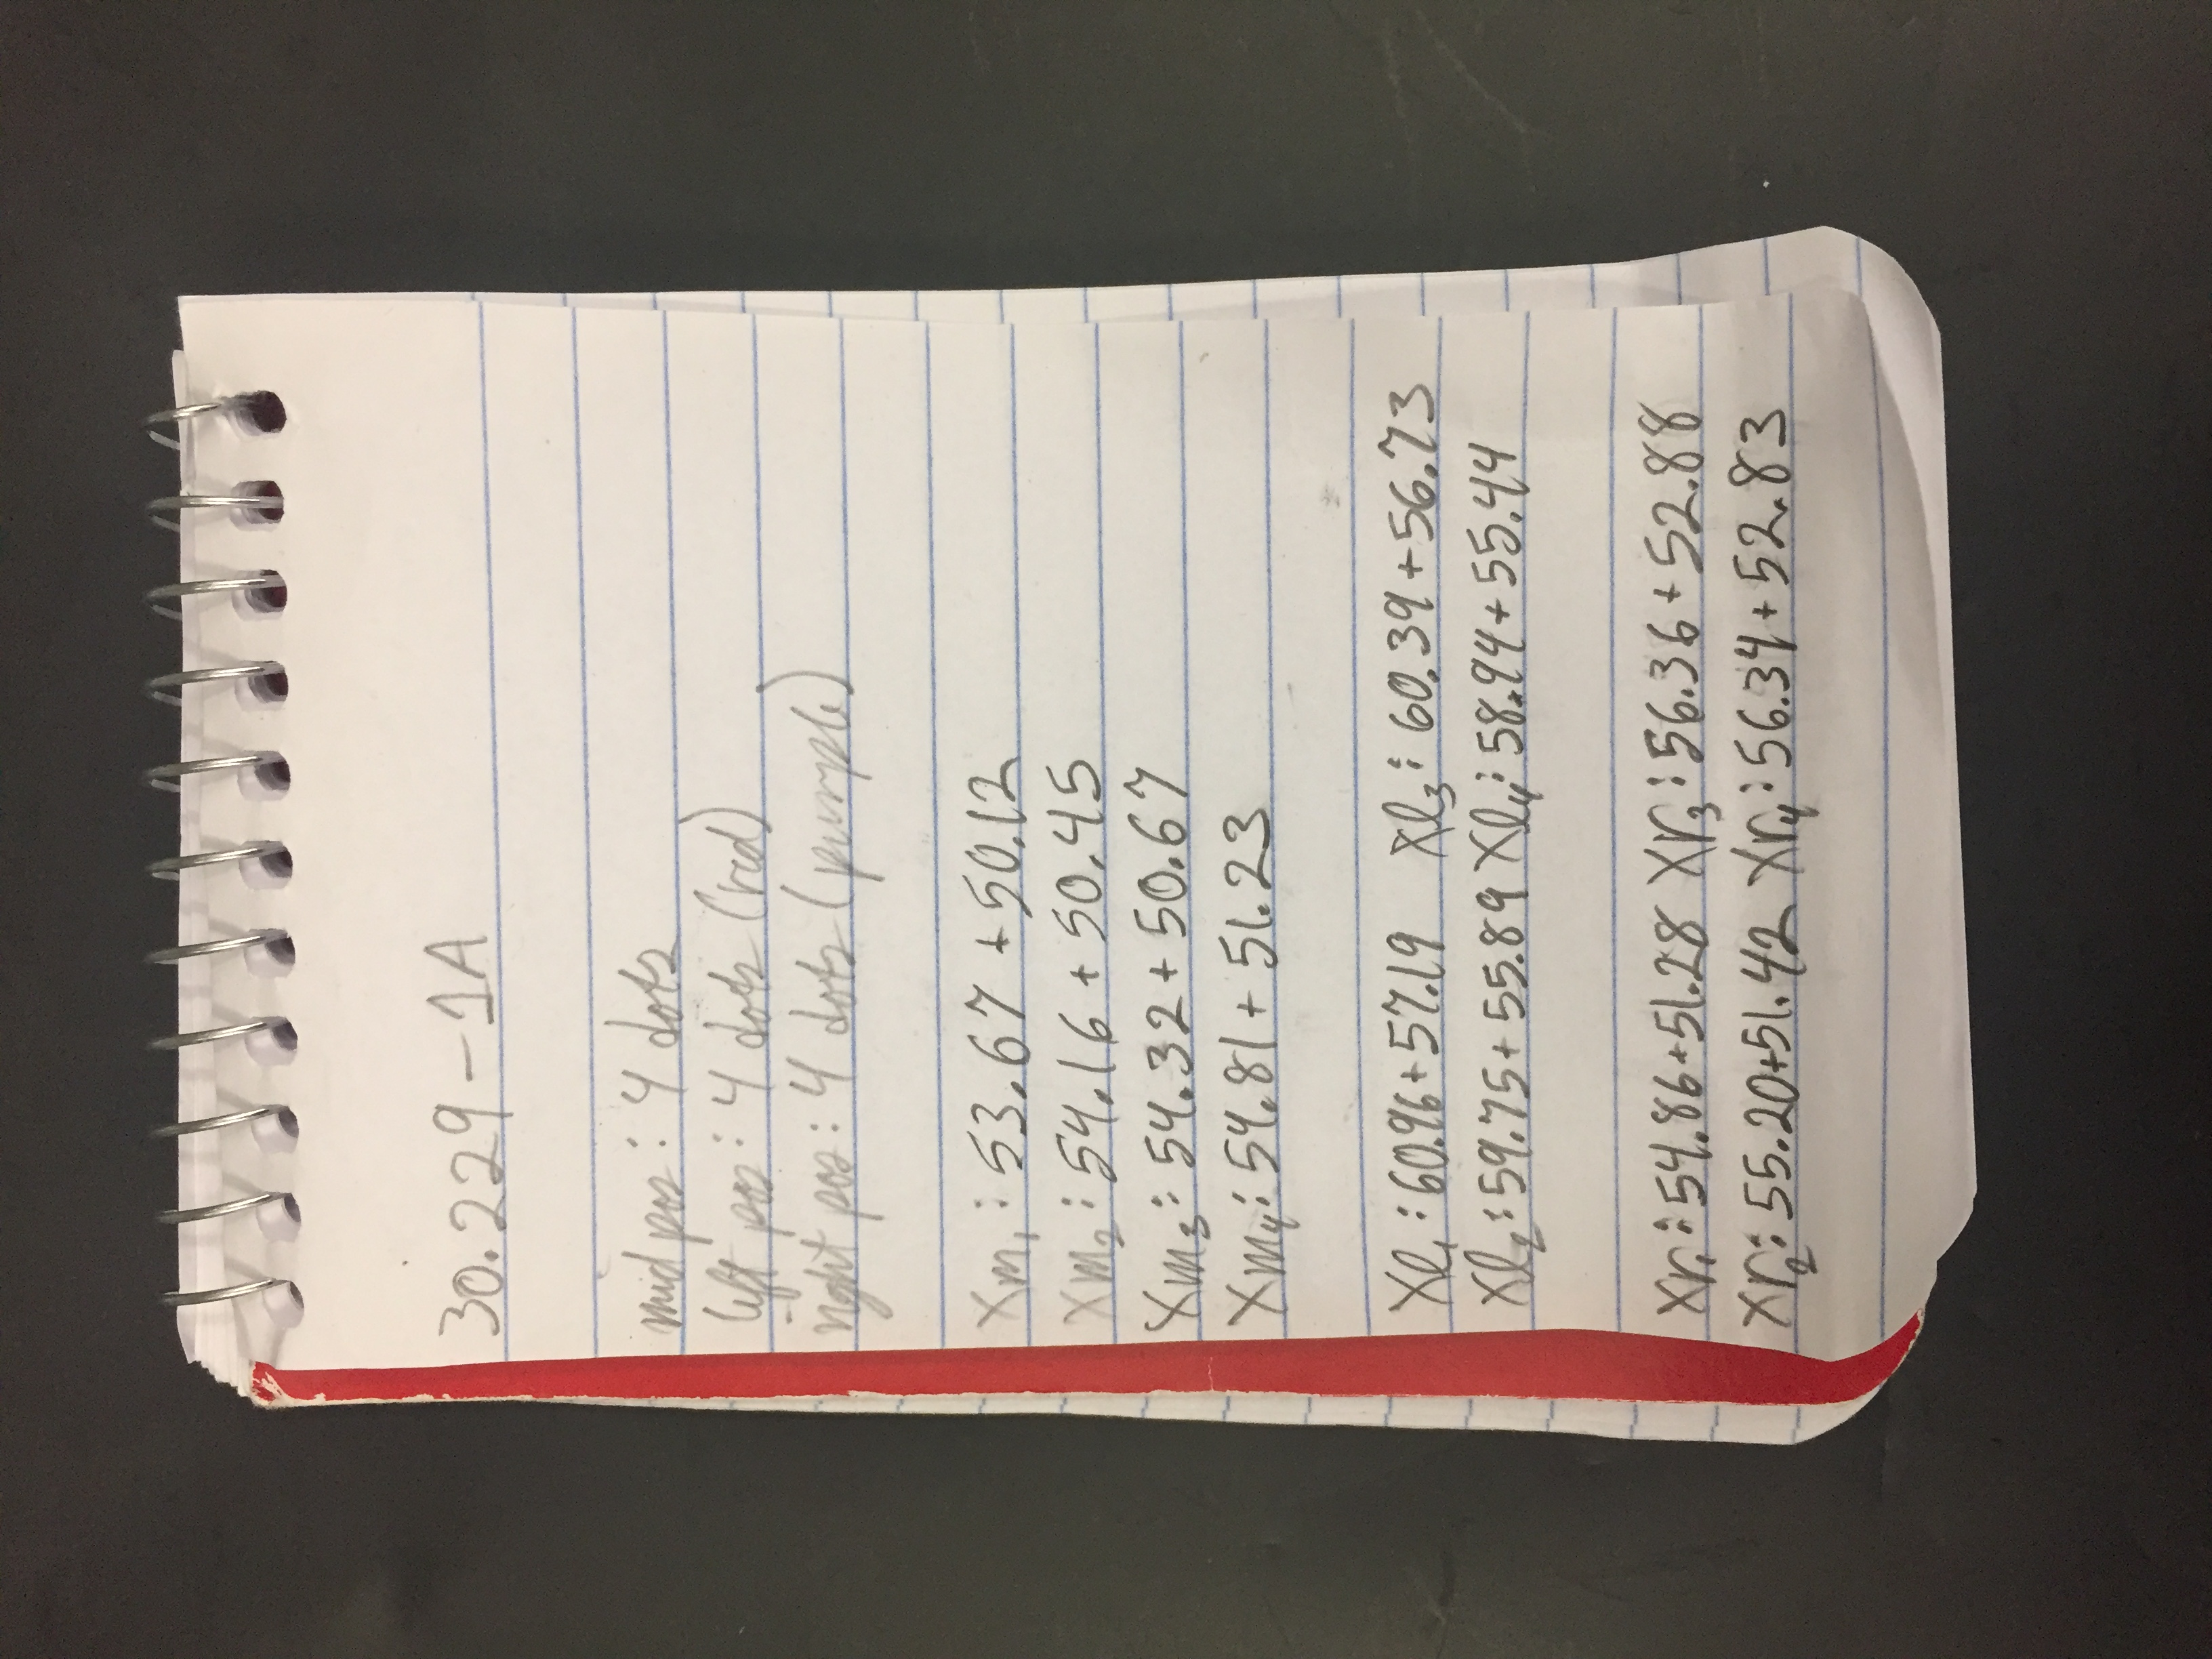 30.229-1A
mid pos: 4 dots
left pos: 4 dots (red)
right pos: 4 dots (purple)
Xm₁: 53.67 + 50.12
Xm₂: 54.16 + 50.45
Xm₃: 54.32 + 50.67
Xm₄: 54.81 + 51.23
Xl₁: 60.96 + 57.19 Xl₃: 60.39 + 56.73
Xl₂: 59.75 + 55.89 Xl₄: 58.94 + 55.44
Xr₁: 54.86 + 51.28 Xr₃: 56.36 + 52.88
Xr₂: 55.20 + 51.42 Xr₄: 56.34 + 52.83